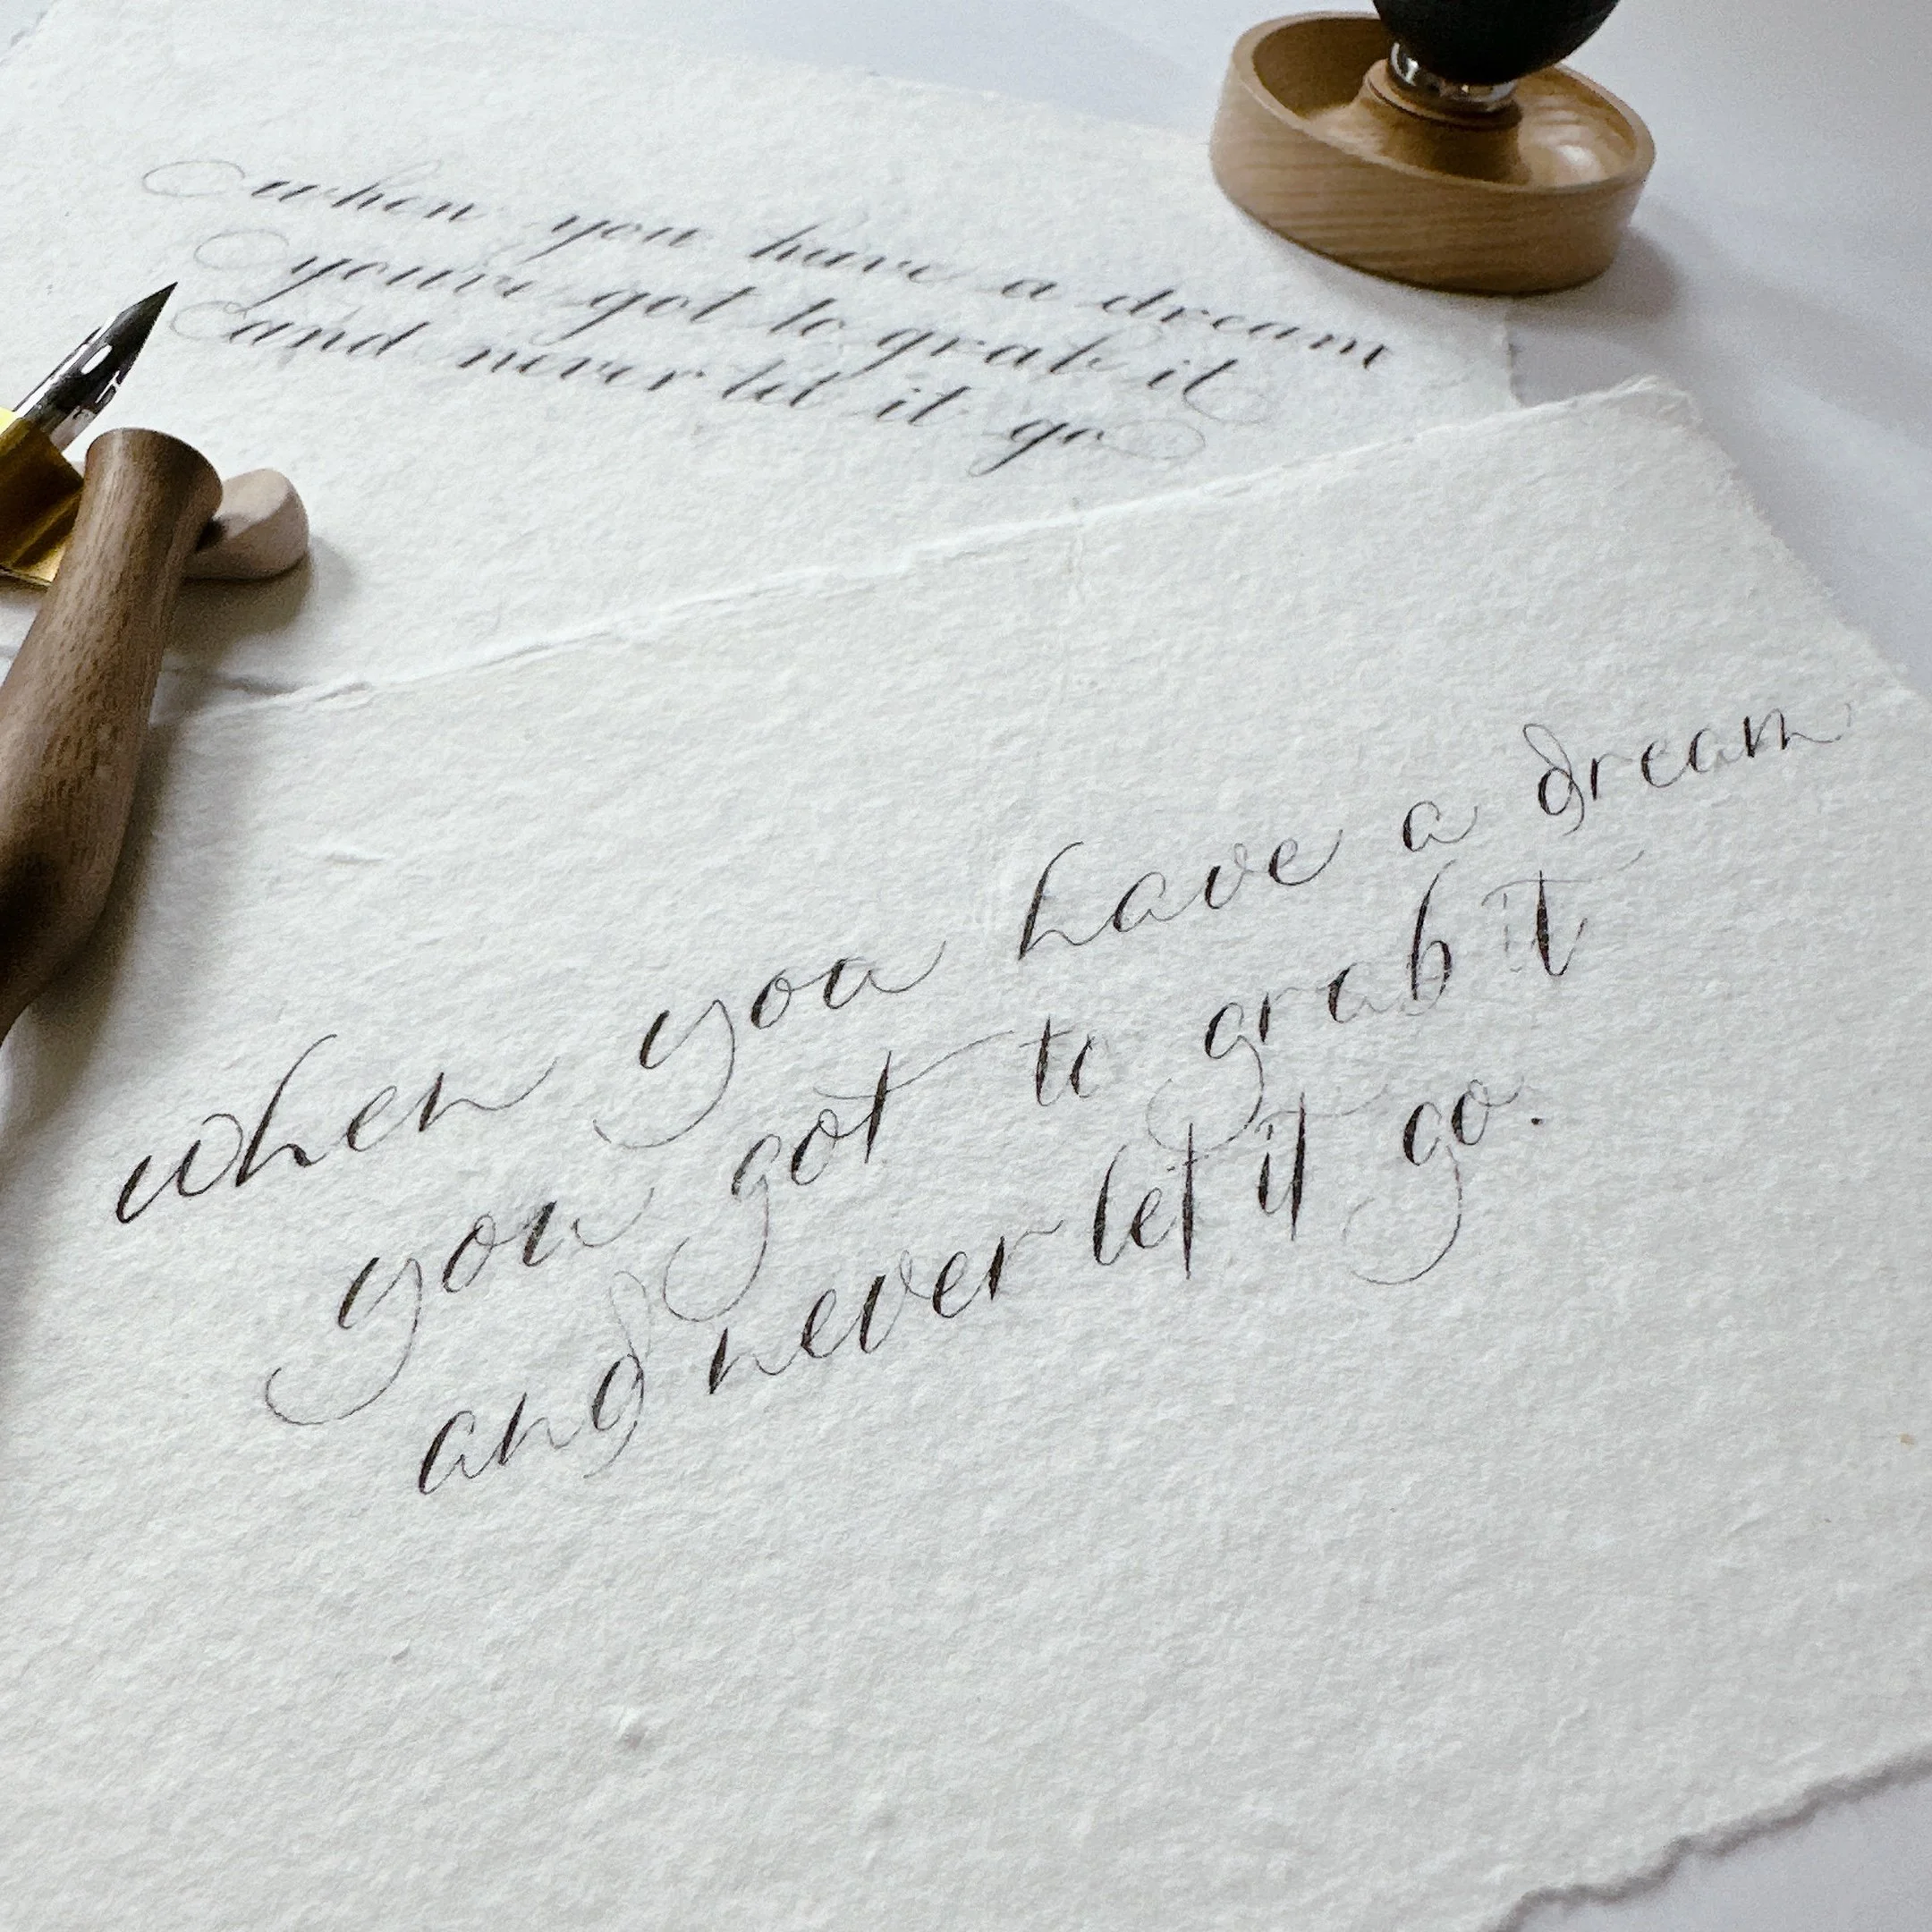 when you have a dream
youve got to grab it
and never let it go
when you have a dream
you got to grab it
and never let it go.